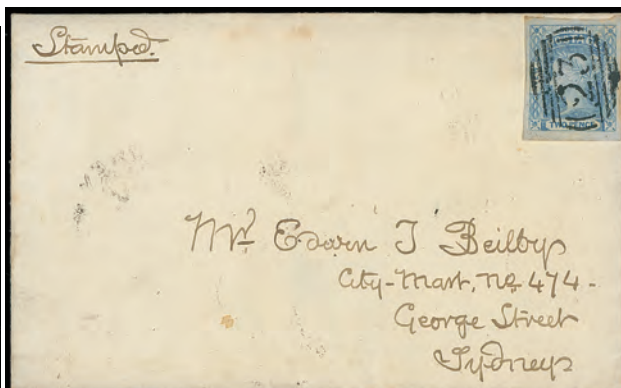 Stamped.
23
TWO PENCE
Mr. Edwin J Beilby
City-Mart, No 474-
George Street
Sydney